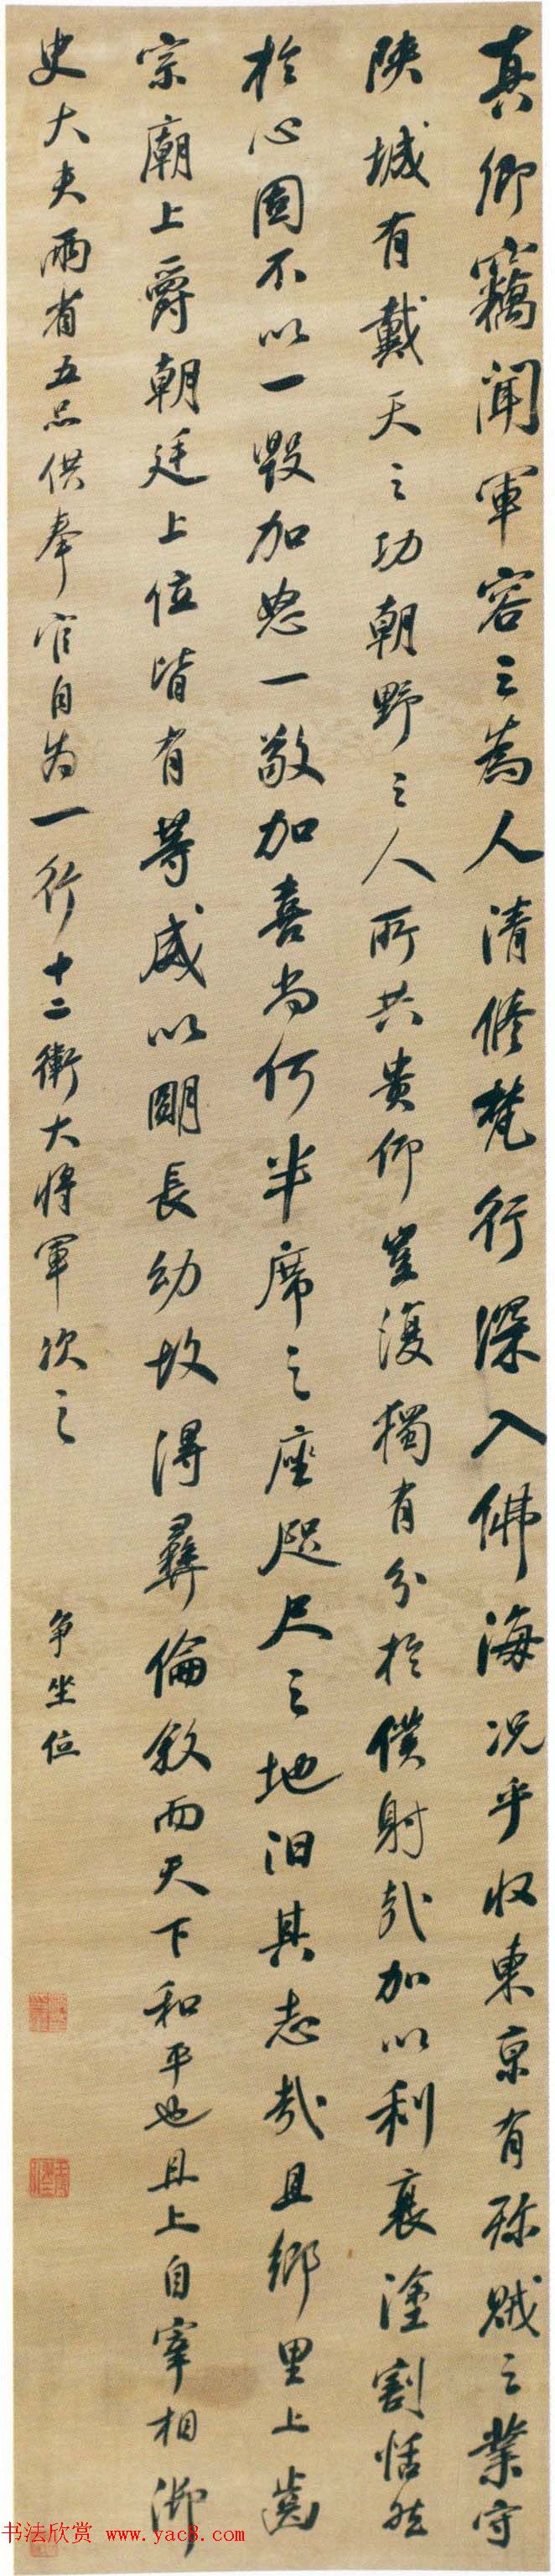 真卿竊聞軍容之為人清修梵行深入佛海況乎收東京有殄賊之業守
陝城有戴天之功朝野之人所共貴仰豈復獨有分於僕射哉加以利衰塗割恬然
於心固不以一毀加怒一敬加喜尚何半席之座咫尺之地汩其志哉且鄉里上齒
宗廟上爵朝廷上位皆有等威以明長幼故得彝倫敘而天下和平也且上自宰相御
史大夫兩省五品供奉官自為一行十二衛大將軍次之
爭坐位
书法欣赏 www.yac8.com